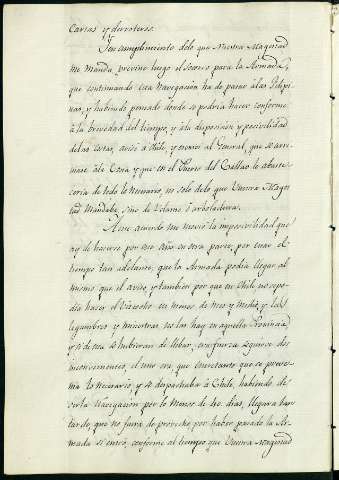 Cartas y derroteros.
En cumplimiento de lo que Vuestra Magestad
me Manda previne luego el socorro para la Armada,
que continuando esta Navegacion ha de pasar á las Felipi-
nas, y habiendo pensado donde se podria hacer conforme
á la brevedad del tiempo, y á la disposicion y posivilidad
de las costas, avisó á Chile, y envié al General, que se arri-
mase á la Costa y que en el Puerto del Callao le abaste-
ceria de todo lo Necesario, no solo de lo que Vuestra Mages-
tad Mandaba, sino de Velamen ó arboladuras.
A este acuerdo me movió la imposivilidad que
ay de hacerse por este Año en otra parte, por estar el
tiempo tan adelante, que la Armada podia llegar al
mismo que el aviso y tambien por que en Chile no se po-
dia hacer el Viscocho en menos de mes y medio, y las
legumbres y menestras no las hay en aquella Provincia
y si de acá se hubieran de llebar, era fuerza
inconvenientes, el uno era que mientras que se preve-
nia lo necesario y se despachaba á Chile, habiendo de
ser la Navegacion por lo menos de 40 dias, llegara tan
tarde, que no fuera de provecho por haber pasado la Ar-
mada si entró conforme al tiempo que Vuestra Magestad